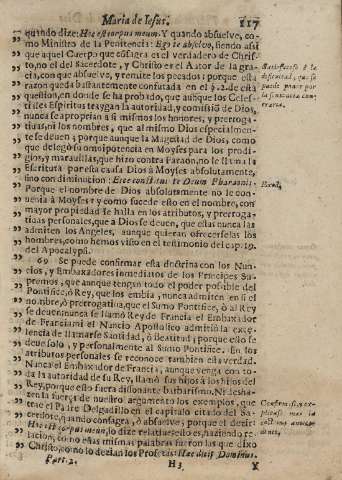 Maria de Iesus.
117
quando dize: Hoc est corpus meum. Y quando absuelve, co-
mo Ministro de la Penitencia: Ego te absolvo, siendo assi
que aquel Cuerpo que cõsagra es el verdadero de Chris-
to, no el del Sacerdote, y Christo es el Autor de la gra-
cia, con que absuelve, y remite los pecados: porque esta
razon queda bastantemente confutada en el §. 2. de esta
question, en donde se ha probado, que aunque los Celes-
tiles Espiritus traygan la autoridad, y comisiõ de Dios,
nunca se apropian a si mismos los honores, y prerroga-
tivas, ni los nombres, que al mismo Dios especialmen-
te se deven; porque aunque la Magestad de Dios, como
que delegò su omnipotencia en Moyses para los prodi-
gios, y maravillas, que hizo contra Faraon, no le llama la
Escritura por esta causa Dios à Moyses absolutamente,
sino con diminucion: Ecce constitui te Deum Pharaonis:
Porque el nombre de Dios absolutamente no le con-
venia à Moyses: y como sucede esto en el nombre, con
mayor propiedad se halla en los atributos, y prerroga-
tivas personales, que à Dios se deven, que estas nunca las
admiten los Angeles, aunque quieran ofrecerselas los
hombres, como hemos visto en el testimonio del cap. 19.
del Apocalypsi.
69 Se puede confirmar esta doctrina con los Nun-
cios, y Embaxadores inmediatos de los Principes Su-
premos, que aunque tengan todo el poder possible del
Pontifice, ò Rey, que los embia, nunca admiten en si el
nombre, ò prerrogativa, que el Sumo Pontifice, ò al Rey
se deven: nunca se llamò Rey de Francia el Embaxador
de Francia, ni el Nuncio Apostolico admitiò la exce-
lencia de llamarse Santidad, ò Beatitud; porque esto se
deve solo, y personalmente al Sumo Pontifice. En los
atributos personales se reconoce tambien esta verdad.
Nunca el Embaxador de Francia, aunque venga con to-
da la autoridad de su Rey, llamò sus hijos à los hijos del
Rey, porque esto fuera disonante barbarismo. Ni desha-
ze la fuerça de nuestro argumento los exemplos, que
trae el Padre Delgadillo en el capitulo citado del Sa-
cerdote, quando consagra, ò absuelve, porque el dezir:
Hoc est corpus meum, lo dize relative, esto es, haziendo re-
lacion, como essas mismas palabras fueron las que dixo
Christo, como lo dezian los Profetas: Haec dicit Dominus.
Part. 2.
H 3
Y
Exod.